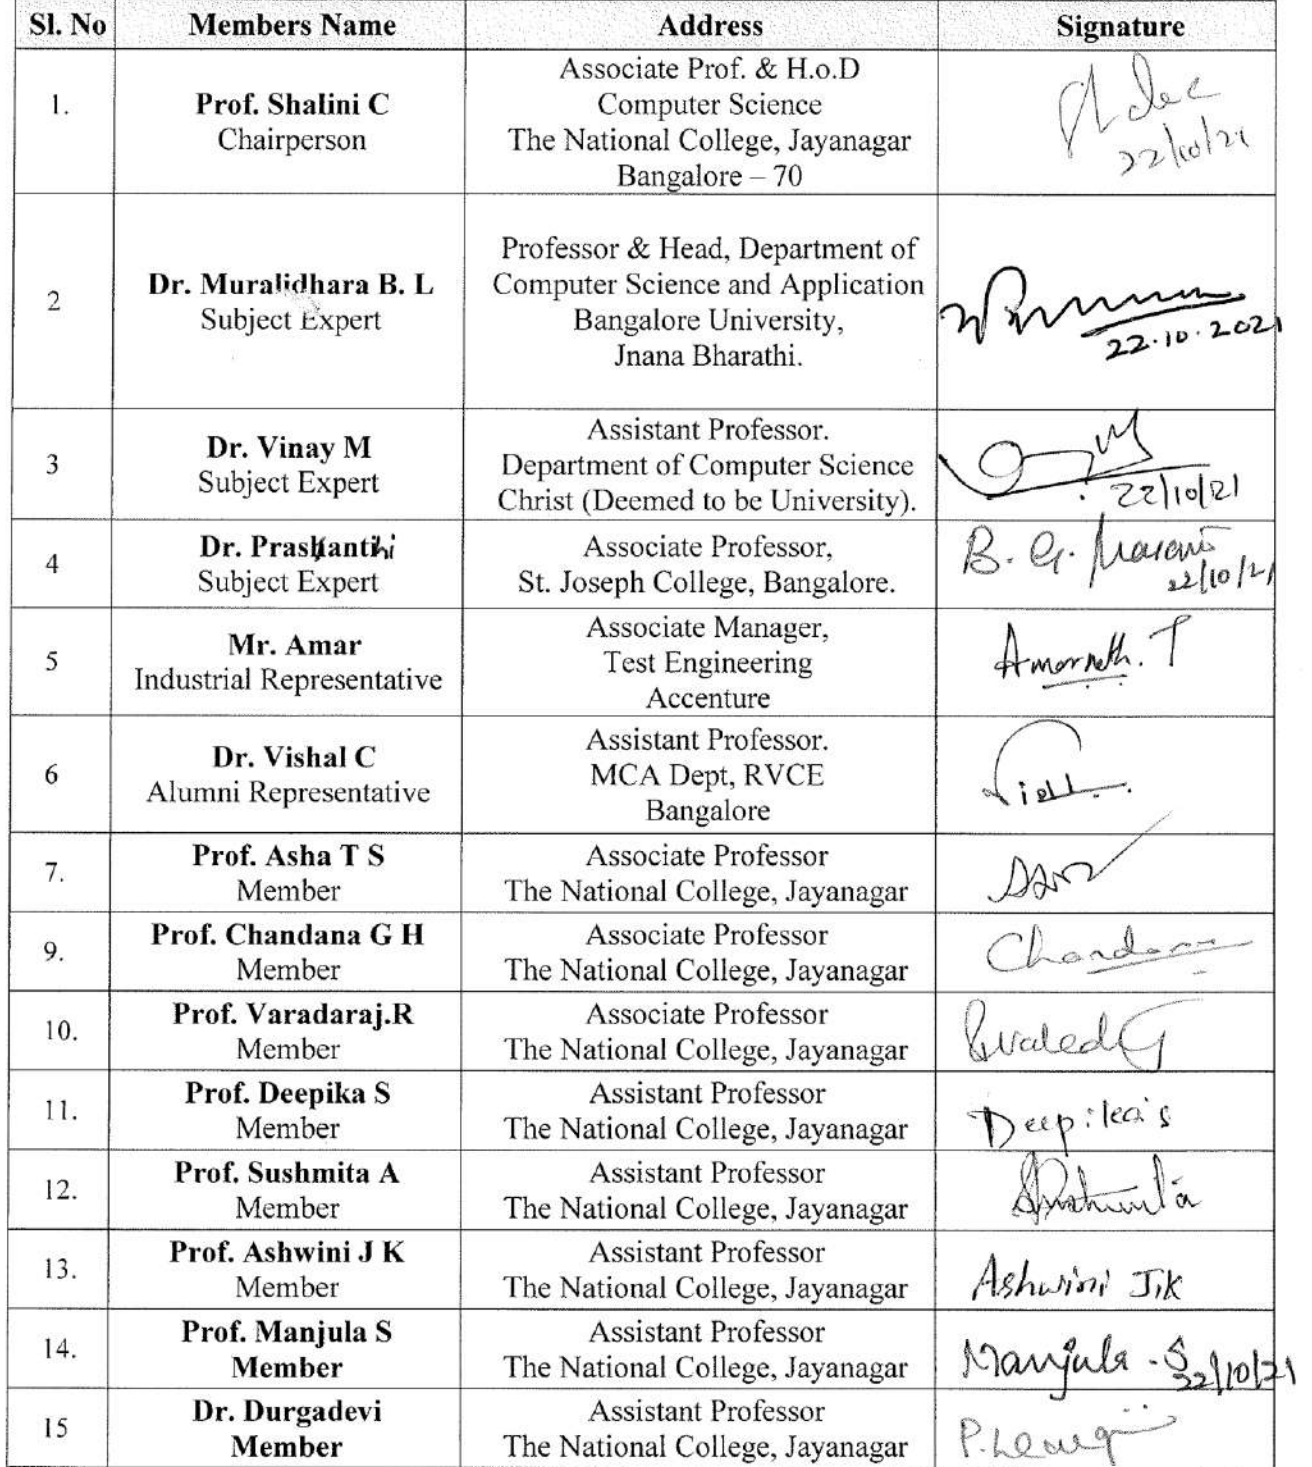 Sl. No Members Name Address Signature
1. Prof. Shalini C
Chairperson
Associate Prof. & H.o.D
Computer Science
The National College, Jayanagar
Bangalore – 70
22/10/21
2 Dr. Muralidhara B. L
Subject Expert
Professor & Head, Department of
Computer Science and Application
Bangalore University,
Jnana Bharathi.
22.10.2021
3 Dr. Vinay M
Subject Expert
Assistant Professor.
Department of Computer Science
Christ (Deemed to be University).
22/10/21
4 Dr. Prashanthi
Subject Expert
Associate Professor,
St. Joseph College, Bangalore.
B. G.
22/10/21
5 Mr. Amar
Industrial Representative
Associate Manager,
Test Engineering
Accenture
Amarnath. T
6 Dr. Vishal C
Alumni Representative
Assistant Professor.
MCA Dept, RVCE
Bangalore
7. Prof. Asha T S
Member
Associate Professor
The National College, Jayanagar
9. Prof. Chandana G H
Member
Associate Professor
The National College, Jayanagar
Chandana
10. Prof. Varadaraj.R
Member
Associate Professor
The National College, Jayanagar
11. Prof. Deepika S
Member
Assistant Professor
The National College, Jayanagar
Deepika S
12. Prof. Sushmita A
Member
Assistant Professor
The National College, Jayanagar
Sushmita
13. Prof. Ashwini J K
Member
Assistant Professor
The National College, Jayanagar
Ashwini J K
14. Prof. Manjula S
Member
Assistant Professor
The National College, Jayanagar
Manjula . S
22/10/21
15 Dr. Durgadevi
Member
Assistant Professor
The National College, Jayanagar